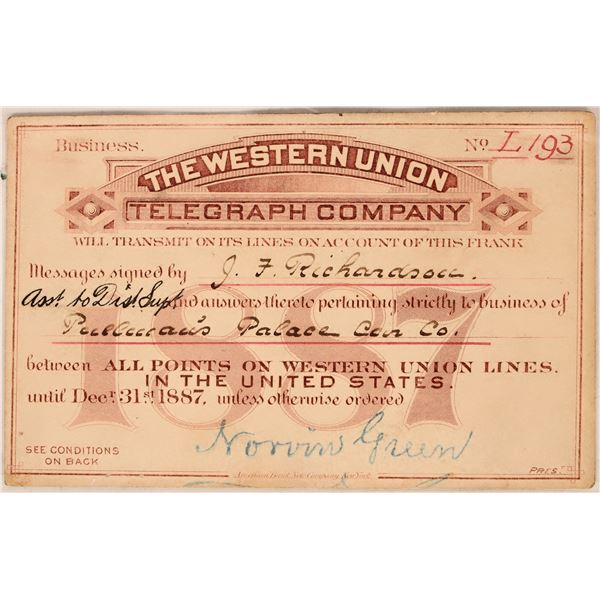 Business. No. L193
THE WESTERN UNION
TELEGRAPH COMPANY
WILL TRANSMIT ON ITS LINES ON ACCOUNT OF THIS FRANK
Messages signed by J. F. Richardson.
Asst. to Dist. Supt. and answers thereto pertaining strictly to business of
Pullman's Palace Car Co.
1887
between ALL POINTS ON WESTERN UNION LINES.
IN THE UNITED STATES.
until Decr. 31st 1887, unless otherwise ordered
Norvin Green
SEE CONDITIONS
ON BACK
PREST.
American Bank Note Company, New York.